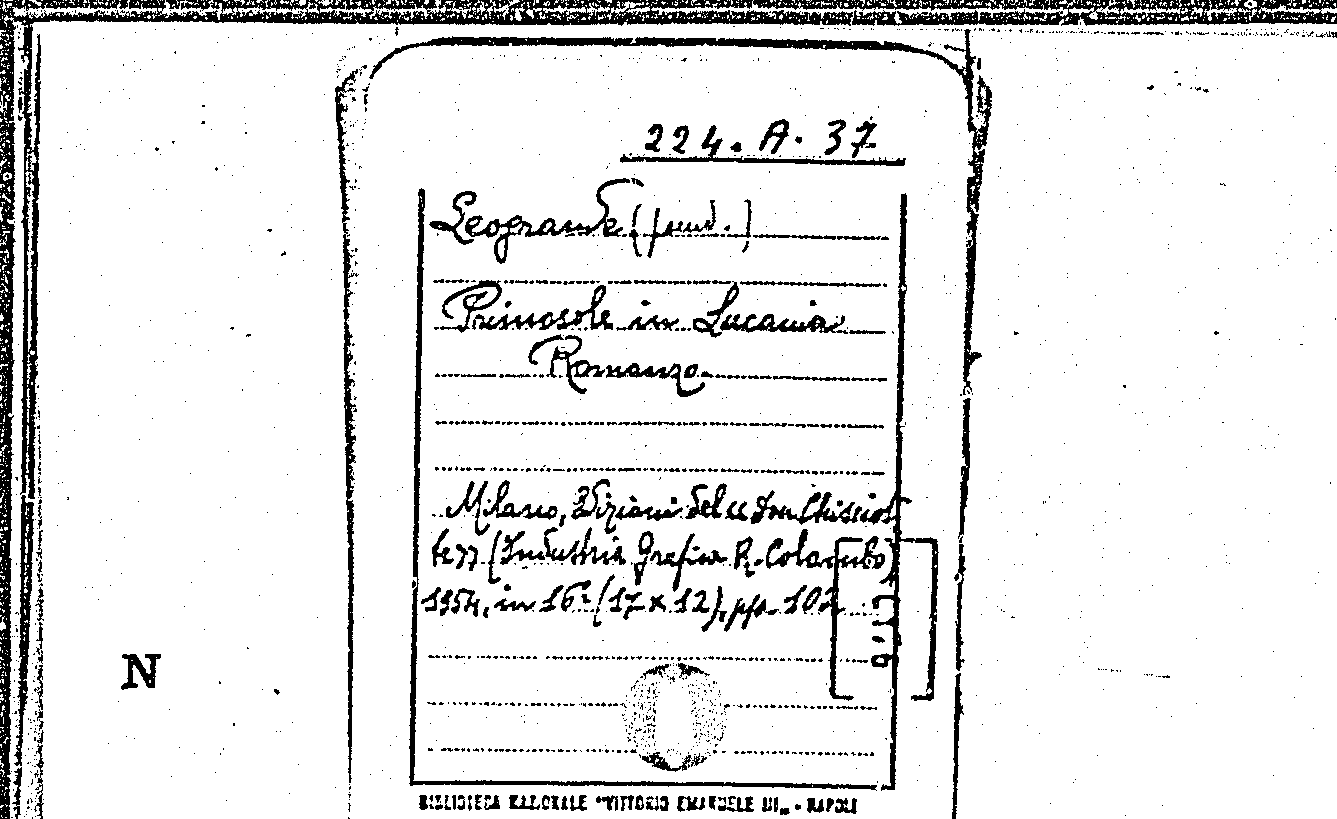 224. A. 37
Leogrande (pseud.)
Primosole in Lucania
Romanzo.
Milano, Edizioni del "Don Chisciot
te" (Industria Grafica R. Colombo)
1954, in 16° (17 x 12), pp. 102
N
BIBLIOTECA NAZIONALE "VITTORIO EMANUELE III" - NAPOLI